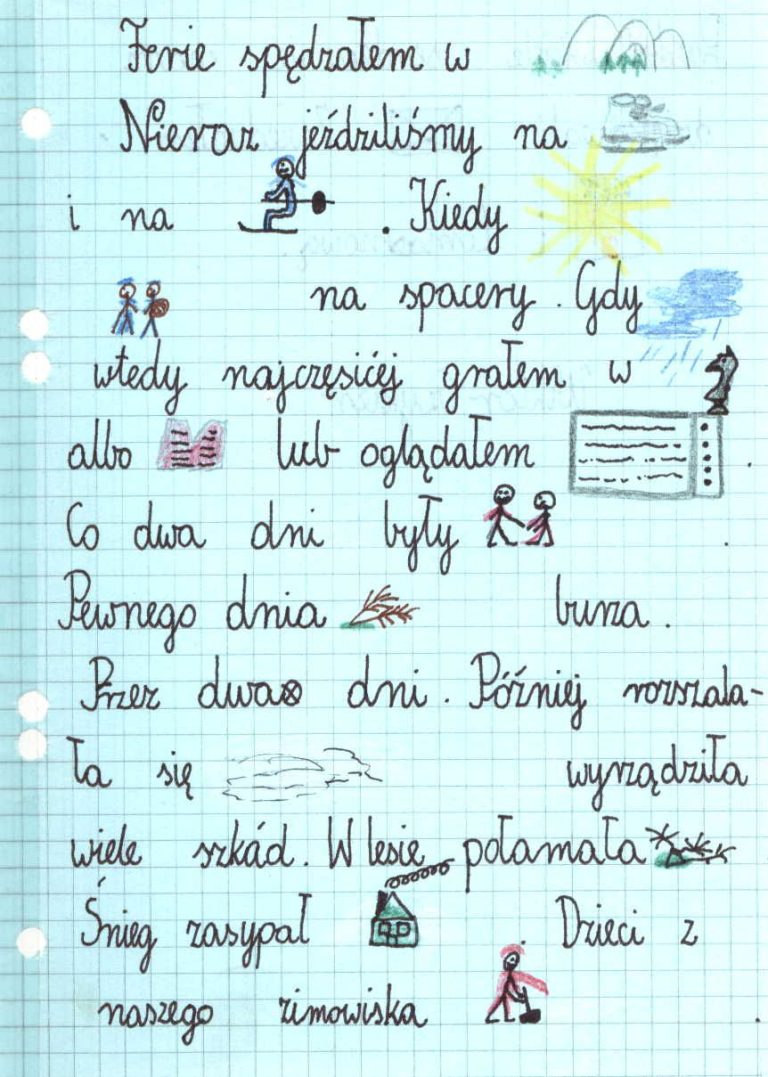 Ferie spędzałem w
Nieraz jeździliśmy na
i na . Kiedy
na spacery. Gdy
wtedy najczęsićej grałem w
albo lub oglądałem .
Co dwa dni były .
Pewnego dnia burza.
Przez dwa dni. Później rozszala-
ła się wyrządziła
wiele szkád. W lesie połamała
Śnieg zasypał . Dzieci z
naszego zimowiska .